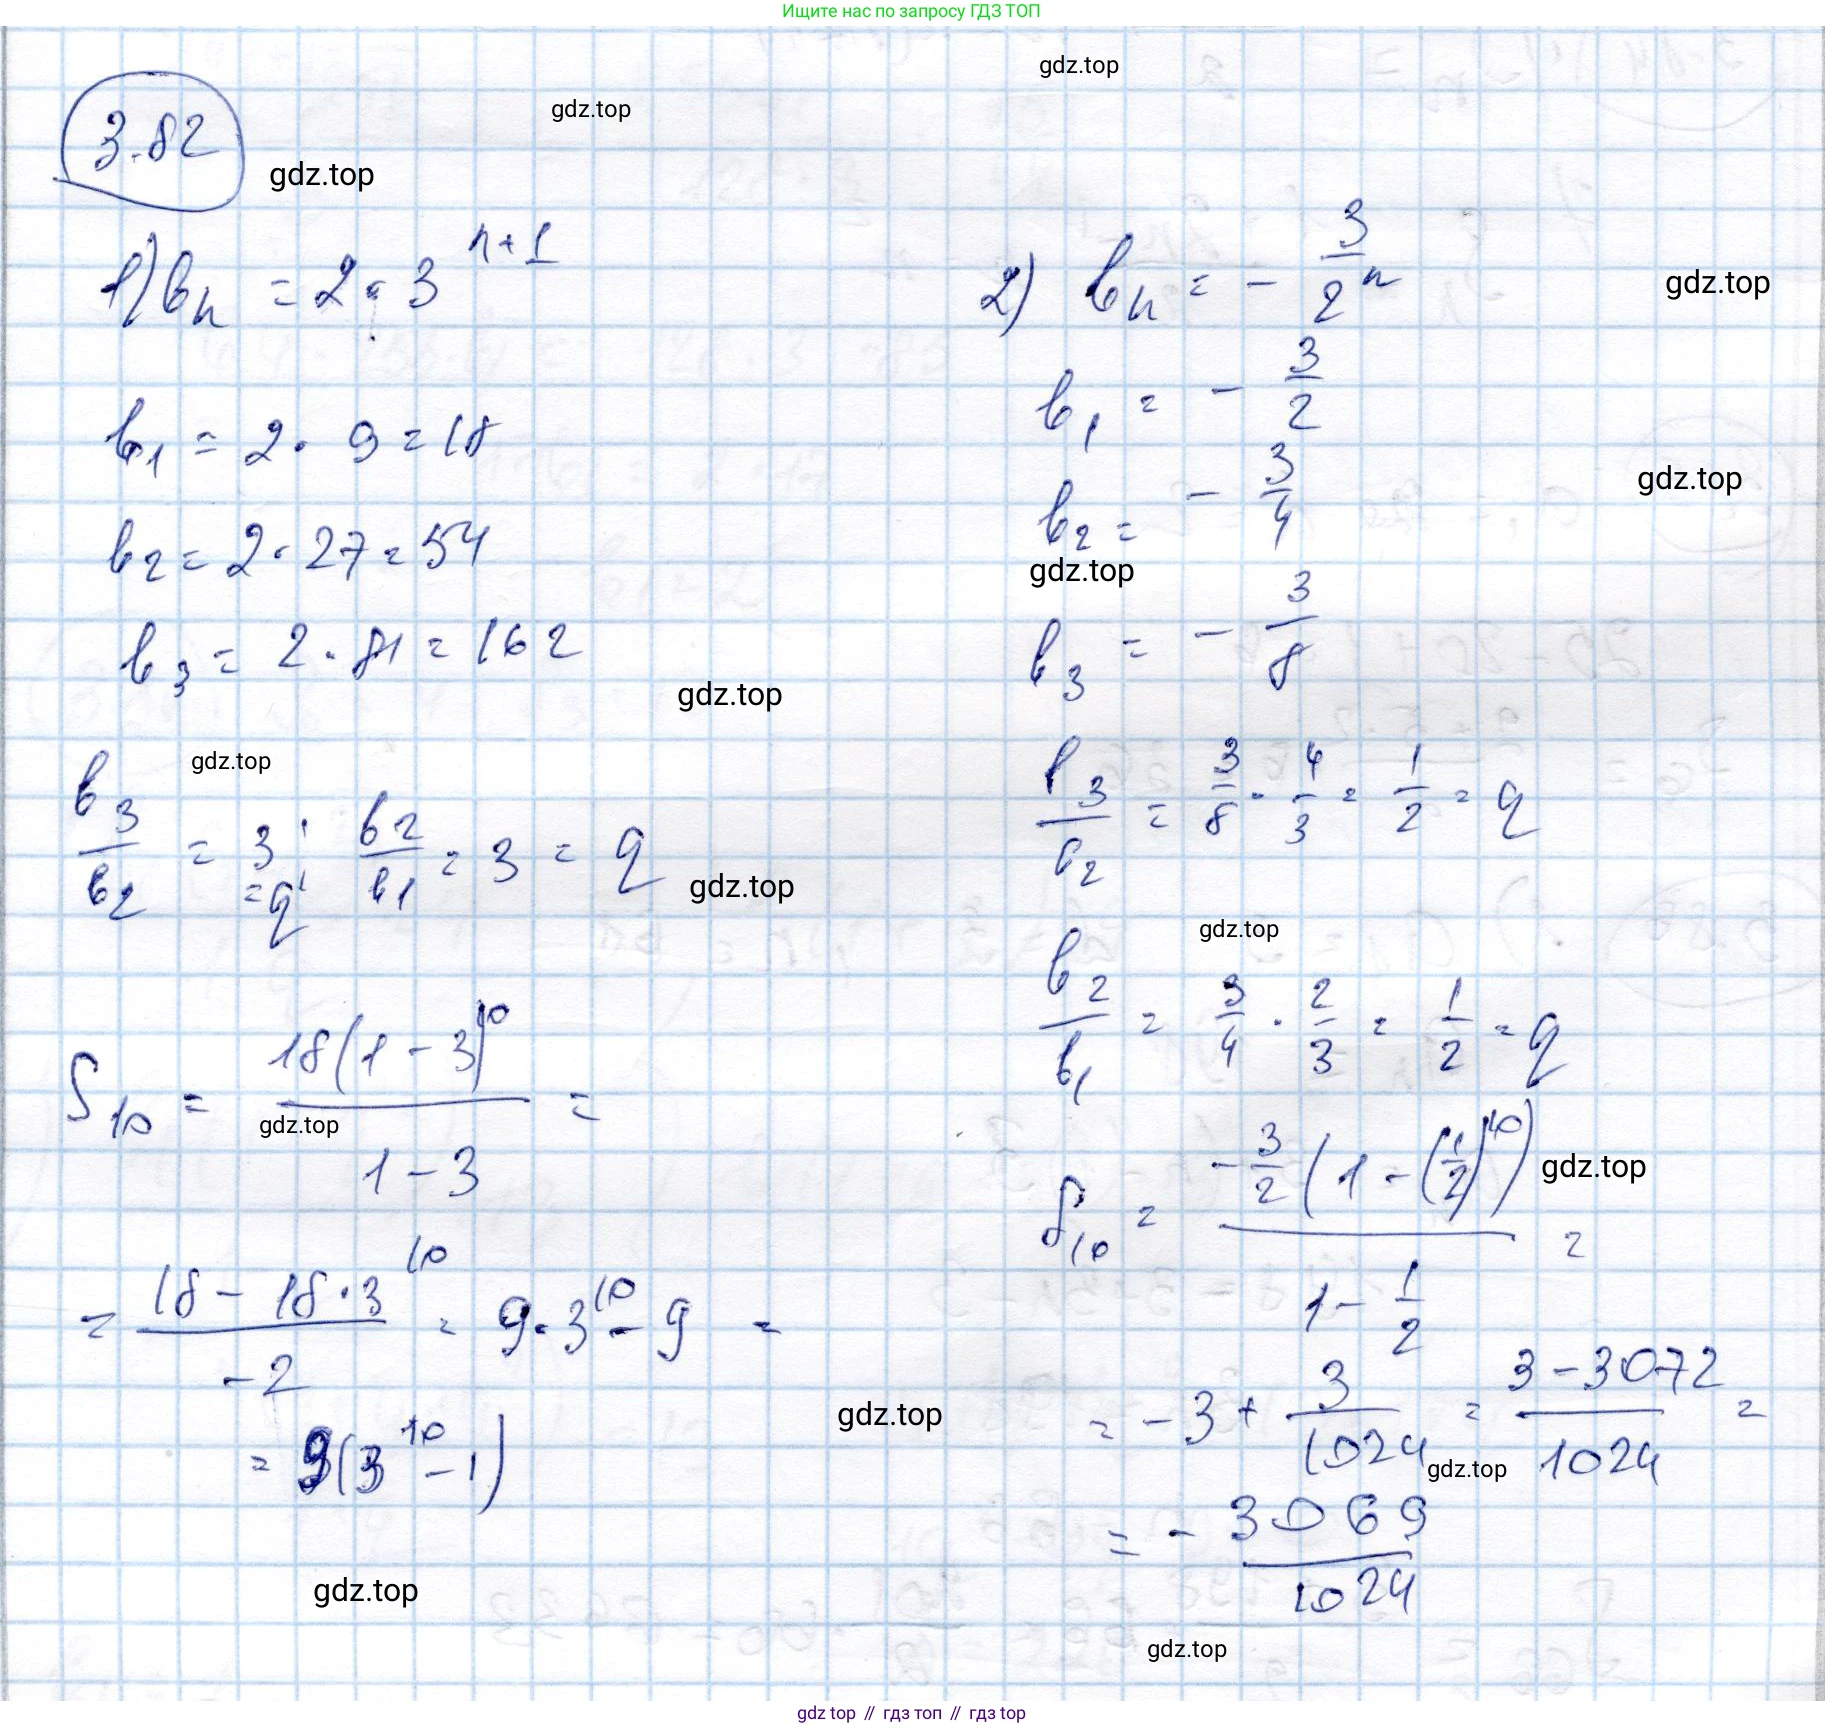 Ищите нас по запросу ГДЗ ТОП
gdz.top
gdz.top
3.82
gdz.top
1) bₙ = 2 · 3ⁿ⁺¹
b₁ = 2 · 9 = 18
b₂ = 2 · 27 = 54
b₃ = 2 · 81 = 162
gdz.top
gdz.top
b₃/b₂ = 3 = q; b₂/b₁ = 3 = q
gdz.top
S₁₀ = 18(1 - 3)¹⁰ / (1 - 3) =
gdz.top
= (18 - 18 · 3¹⁰) / (-2) = 9 · 3¹⁰ - 9 =
= 9(3¹⁰ - 1)
gdz.top
gdz.top
2) bₙ = - 3/2ⁿ
gdz.top
b₁ = - 3/2
b₂ = - 3/4
gdz.top
gdz.top
b₃ = - 3/8
b₃/b₂ = 3/8 · 4/3 = 1/2 = q
gdz.top
b₂/b₁ = 3/4 · 2/3 = 1/2 = q
S₁₀ = -3/2 (1 - (1/2)¹⁰) / (1 - 1/2) =
gdz.top
= -3 + 3/1024 = (3 - 3072)/1024 =
gdz.top
= - 3069/1024
gdz.top
gdz top // гдз топ // гдз top